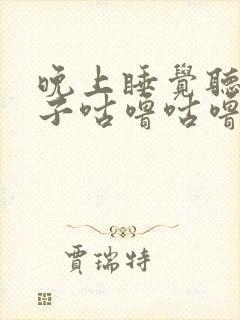 晚上睡覺聽
子咕嚕咕嚕
賈瑞特